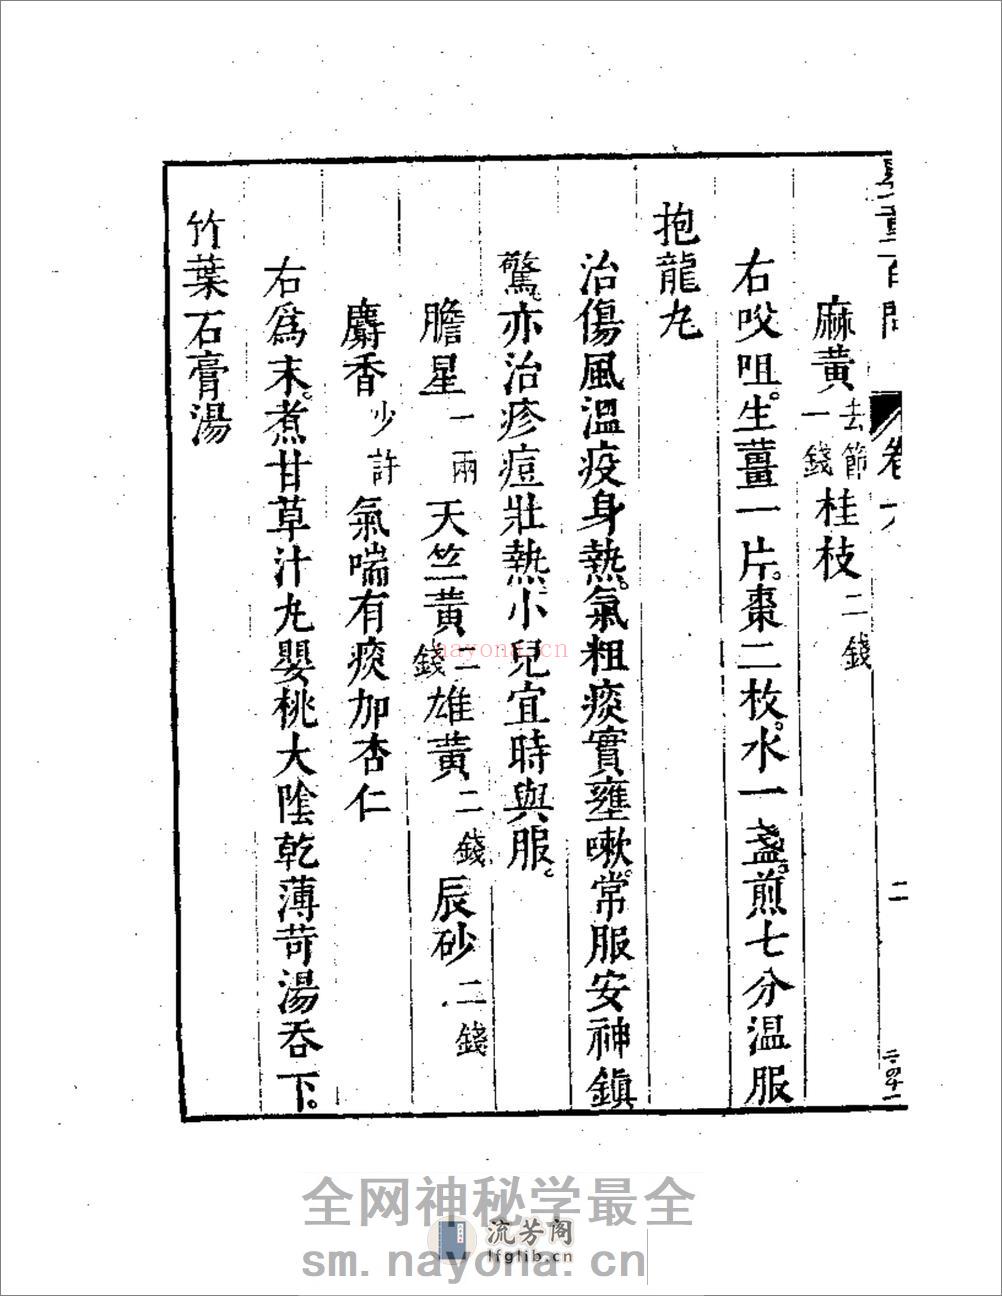 嬰童百問 卷六 二
麻黃去節一錢 桂枝二錢
右㕮咀。生薑一片。棗二枚。水一盞。煎七分温服
抱龍丸
治傷風溫疫身熱。氣粗痰實壅嗽。常服安神鎮
驚。亦治疹痘壯熱。小兒宜時與服。
膽星一兩 天竺黃二錢 雄黃二錢 辰砂二錢
麝香少許 氣喘有痰加杏仁
右爲末。煮甘草汁丸嬰桃大陰乾薄荷湯吞下。
竹葉石膏湯
nayona.cn
全网神秘学最全
流芳阁
lfglib.cn
sm.nayona.cn